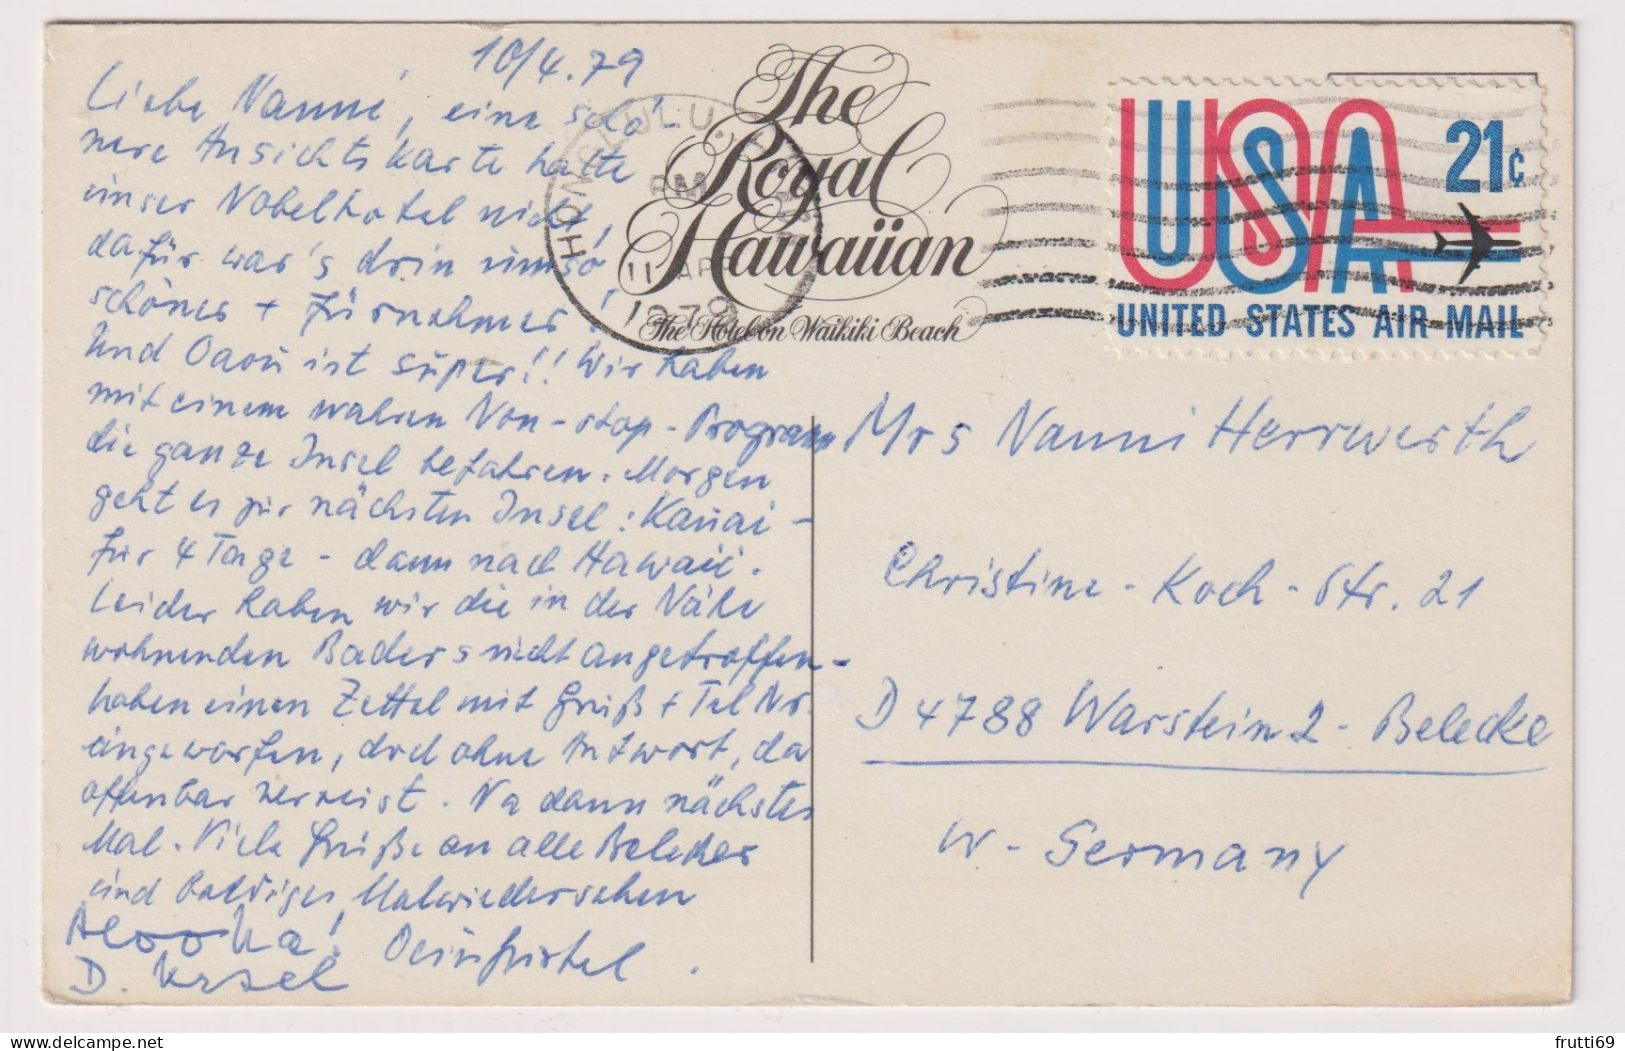 10/4.79
Liebe Nanni, eine schö-
nere Ansichtskarte hatte
unser Nobelhotel nicht,
dafür war's drin umso
schöner + fürnehmer!
Und Oaou ist super!! Wir haben
mit einem wahren Non-stop-Programm
die ganze Insel befahren. Morgen
geht es zur nächsten Insel: Kauai -
für 4 Tage - dann nach Hawaii.
Leider haben wir die in der Nähe
wohnenden Baders nicht angetroffen -
haben einen Zettel mit Gruß + Tel Nr.
eingeworfen, doch ohne Antwort, da
offenbar verreist. Na dann nächstes
Mal. Viele Grüße an alle Belecker
und baldiges Malwiedersehen
Alooha!
D. Ursel
The
Royal
Hawaiian
The Hotel on Waikiki Beach
HONOLULU,
PM
11 AP
1979
USA 21¢
UNITED STATES AIR MAIL
Mrs Nanni Herrwerth
Christine-Koch-Str. 21
D 4788 Warstein 2 - Belecke
W-Germany
frutti69
delcampe.net